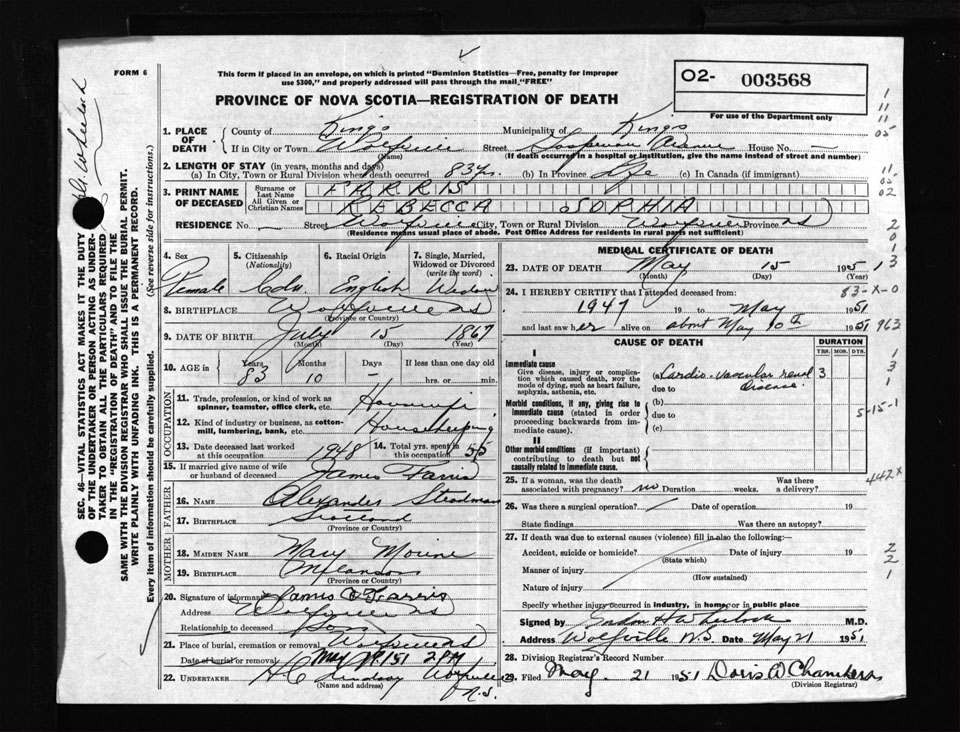 FORM 6
This form if placed in an envelope, on which is printed "Dominion Statistics—Free, penalty for improper
use $300," and properly addressed will pass through the mail "FREE"
PROVINCE OF NOVA SCOTIA—REGISTRATION OF DEATH
O2- 003568
For use of the Department only
1. PLACE OF DEATH
County of Kings Municipality of Kings
If in City or Town Wolfville Street Avenue House No. —
(Name) (If death occurred in a hospital or institution, give the name instead of street and number)
2. LENGTH OF STAY (in years, months and days)
(a) In City, Town or Rural Division where death occurred 83 yrs. (b) In Province Life (c) In Canada (if immigrant)
3. PRINT NAME OF DECEASED
Surname or Last Name FARRIS
All Given or Christian Names REBECCA SOPHIA
RESIDENCE No. — Street Wolfville City, Town or Rural Division Wolfville Province NS
(Residence means usual place of abode. Post Office Address for residents in rural parts not sufficient)
4. Sex Female
5. Citizenship (Nationality) Cdn.
6. Racial Origin English
7. Single, Married, Widowed or Divorced (write the word) Widow
8. BIRTHPLACE Wolfville NS
(Province or Country)
9. DATE OF BIRTH July 15 1867
(Month) (Day) (Year)
10. AGE in Years 83 Months 10 Days - If less than one day old hrs. or min.
OCCUPATION
11. Trade, profession, or kind of work as spinner, teamster, office clerk, etc. Housewife
12. Kind of industry or business, as cotton-mill, lumbering, bank, etc. Housekeeping
13. Date deceased last worked at this occupation 1948
14. Total yrs. spent in this occupation 55
15. If married give name of wife or husband of deceased James Farris
FATHER
16. NAME Alexander Steadman
17. BIRTHPLACE Scotland
(Province or Country)
MOTHER
18. MAIDEN NAME Mary Mourine
19. BIRTHPLACE
(Province or Country)
20. Signature of informant James Farris
Address Wolfville NS
Relationship to deceased Son
21. Place of burial, cremation or removal Wolfville NS
Date of burial or removal May /51 2 PM
22. UNDERTAKER H C Lindsay Wolfville N.S.
(Name and address)
MEDICAL CERTIFICATE OF DEATH
23. DATE OF DEATH May 15 1951
(Month) (Day) (Year)
24. I HEREBY CERTIFY that I attended deceased from:
1947 19 to May 1951
and last saw her alive on about May 10th 1951
CAUSE OF DEATH
DURATION
YRS. MOS. DYS.
I
Immediate cause
Give disease, injury or complication which caused death, NOT the mode of dying, such as heart failure, asphyxia, asthenia, etc.
(a) Cardio-vascular renal disease. 3
due to
Morbid conditions, if any, giving rise to immediate cause (stated in order proceeding backwards from immediate cause).
(b)
due to
(c)
II
Other morbid conditions (if important) contributing to death but not causally related to immediate cause.
25. If a woman, was the death associated with pregnancy? no Duration weeks. Was there a delivery?
26. Was there a surgical operation? Date of operation 19
State findings Was there an autopsy?
27. If death was due to external causes (violence) fill in also the following:
Accident, suicide or homicide? Date of injury 19
(State which)
Manner of injury
(How sustained)
Nature of injury
Specify whether injury occurred in industry, in home, or in public place
Signed by Wheelock M.D.
Address Wolfville N.S. Date May 21 1951
28. Division Registrar's Record Number
29. Filed May. 21 1951 Doris D Chambers
(Division Registrar)
SEC. 46—VITAL STATISTICS ACT MAKES IT THE DUTY
OF THE UNDERTAKER OR PERSON ACTING AS UNDERTAKER TO OBTAIN ALL THE PARTICULARS REQUIRED
IN THE "REGISTRATION OF DEATH" AND TO FILE THE
SAME WITH THE DIVISION REGISTRAR WHO SHALL ISSUE THE BURIAL PERMIT.
WRITE PLAINLY WITH UNFADING INK. THIS IS A PERMANENT RECORD.
Every item of information should be carefully supplied. (See reverse side for instructions.)
1
11
11
05
11
05
02
2
0
1
3
83-X-0
963
1
3
1
5-15-1
442X
2
2
1